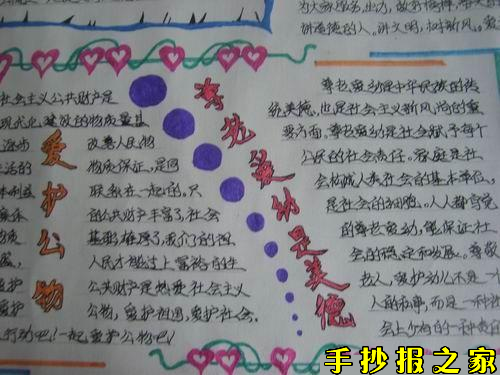 讲道德的人。讲文明,树新风。爱
社会主义公共财产是
现代化建设的物质
逐步
改善人民物
生活的
物质保证,是同
联系在一起的。只
的公共财产丰富了,社会
基础雄厚了,我们的祖
人民才能过上富裕的生
公共财产是热爱社会主义
公物,爱护祖国,爱护社会。
行动吧!一起爱护公物吧!
爱护公物
尊老爱幼是美德
尊老爱幼是中华民族的传
统美德,也是社会主义新风尚的重
要方面,尊老爱幼是社会赋予每个
公民的社会责任。家庭是社
会构成人类社会的基本单位,
是社会的细胞。人人都自觉
的尊老爱幼,能保证社
会的稳定和发展。尊敬
老人,爱护幼儿不是一
人的私事,而是一种社
会上公德的一种责任
手抄报之家